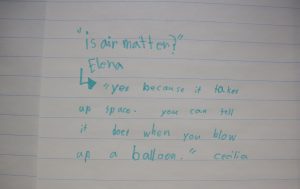 "is air matter?"
Elena
"yes because it takes
up space. you can tell
it does when you blow
up a balloon." cecilia